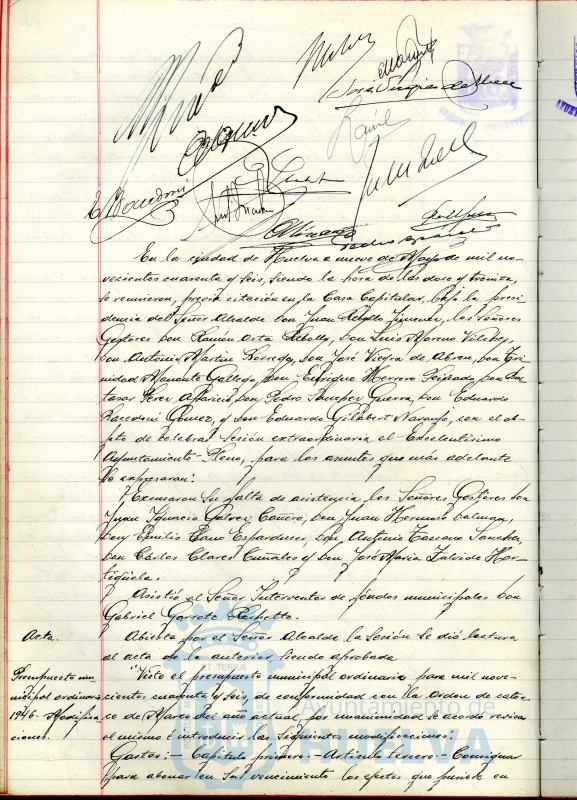 José Vieyra de Abreu
E. Bacedoni
En la ciudad de Huelva a nueve de Mayo de mil no-
vecientos cuarenta y seis, siendo la hora de las doce y treinta,
se reunieron, previa citación en la Casa Capitular, bajo la presi-
dencia del Señor Alcalde Don Juan Rebollo Jimenez, los Señores
Gestores Don Ramón Rebollo, Don Luis Moreno
Don Antonio Martin Don José Vieyra de Abreu, Don Tri-
nidad Gallego Don Enrique Herrero Don Bal-
tasar Perez Aparicio, Don Pedro Sanchez Guerra, Don Eduardo
Bacedoni Gomez, y Don Eduardo Gilabert Naranjo, con el ob-
jeto de celebrar Sesión extraordinaria el Excelentisimo
Ayuntamiento-Pleno, para los asuntos que más adelante
se expresaran:
Excusaron su falta de asistencia los Señores Gestores Don
Juan Ignacio Galvez Cañero, Don Juan Hermoso
Don Emilio Cano Don Antonio Toscano Sanchez,
Don Carlos Clares y Don José Maria
Asistió el Señor Interventor de fondos municipales Don
Gabriel Garrote
Acta.
Abierta por el Señor Alcalde la Sesión se dió lectura
al acta de la anterior siendo aprobada
Presupuesto mu-
nicipal ordinario
1946. Modifica
ciones.
Visto el presupuesto municipal ordinario para mil nove-
cientos cuarenta y seis, de conformidad con la orden de cator
ce de Marzo del año actual, por unanimidad se acordó revisar
el mismo é introducir las siguientes modificaciones:
Gastos: - Capitulo primero: - Articulo tercero: - Consignar
para abonar en su vencimiento los efectos que puso en
ET TERRÆ
Ayuntamiento de
HUELVA